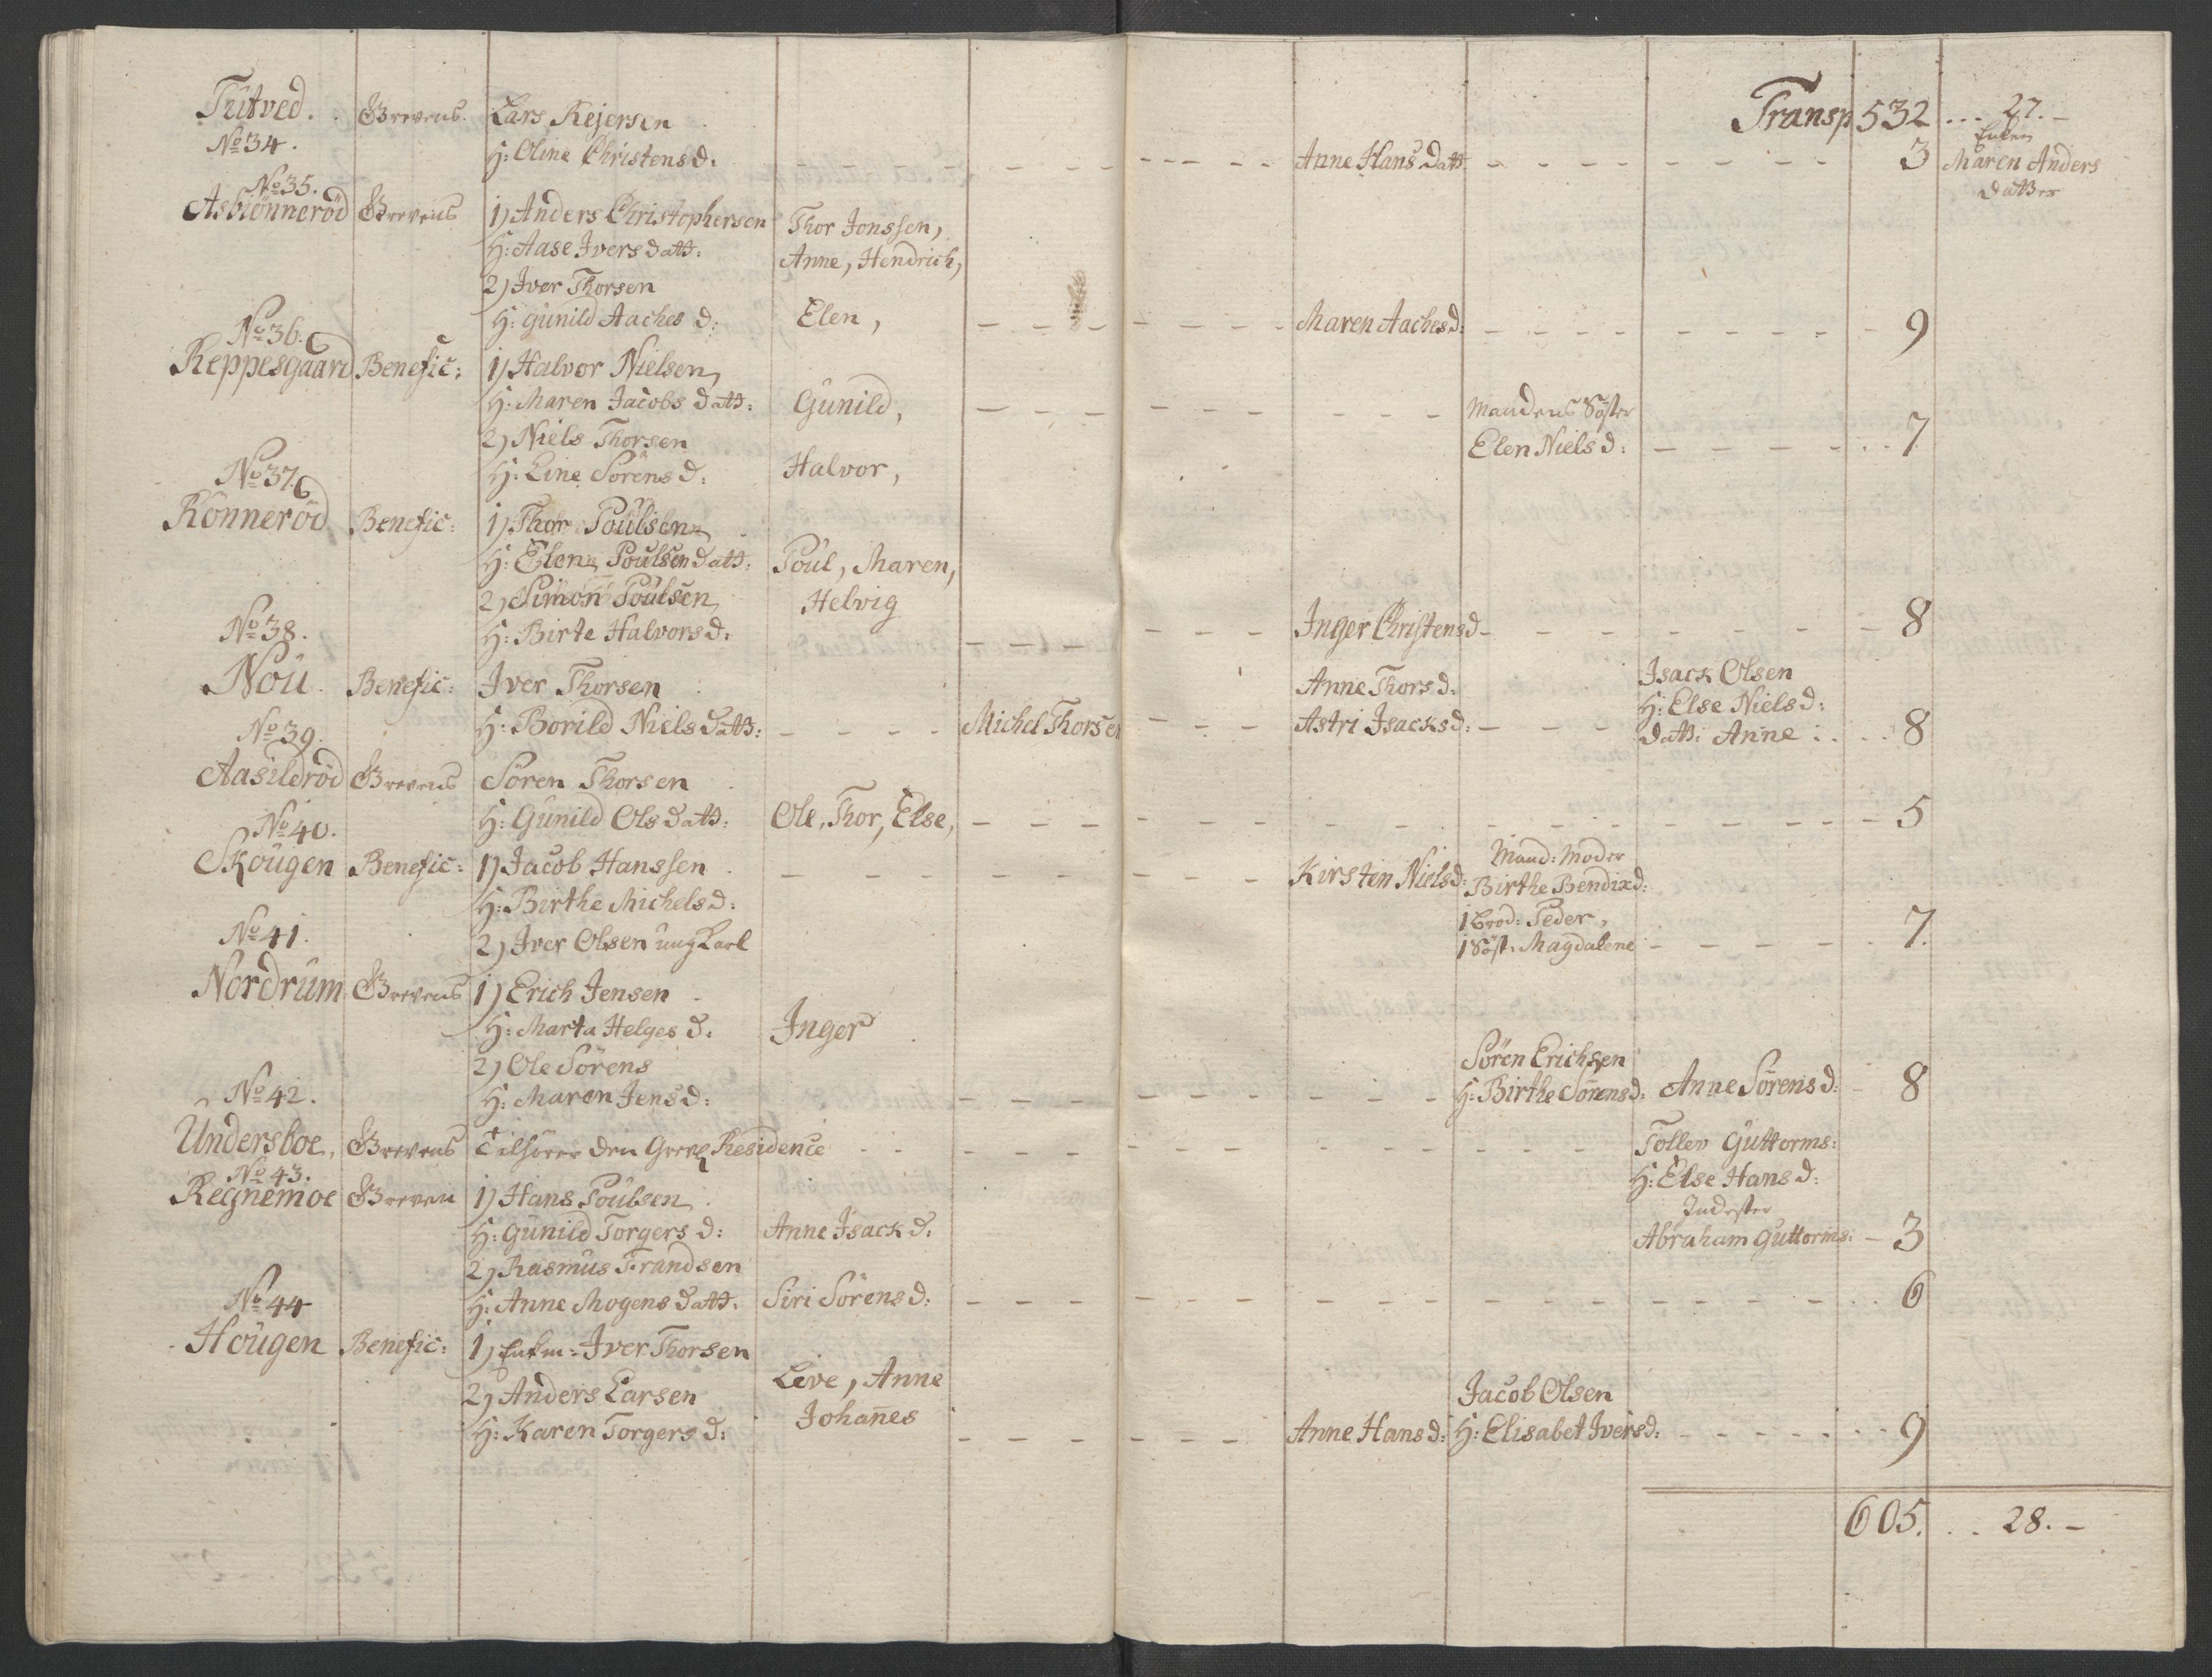 Tutved. Grevens. Lars Rejersen Transp 532 ... 27. -
No 34. H: Oline Christensd: Anne Hans datt. 3 Enken
Maren Anders
datter
No 35.
Asbiönneröd Grevens 1) Anders Christophersen Thor Jonssen,
H: Aase Ivers datt: Anne, Hendrich,
2) Iver Thorsen
H: Gunild Aaches d: Elen, Maren Aaches d: 9
No 36.
Reppesgaard Benefic: 1) Halvor Nielsen
H: Maren Jacobs datt: Gunild, Mandens Söster
2) Niels Thorsen Elen Niels d: 7
H: Line Sörens d: Halvor,
No 37.
Rönneröd Benefic: 1) Thor Poulsen
H: Elen Poulsen datt: Poul, Maren,
2) Simon Poulsen Helvig
H: Birte Halvors d: Inger Christensd 8
No 38.
Nou. Benefic: Iver Thorsen Anne Thors d: Isack Olsen
H: Else Niels d:
H: Borild Niels datt: Michel Thorsen Astri Isacks d: datt: Anne 8
No 39.
Aasildröd Grevens Sören Thorsen
H: Gunild Ols datt: Ole, Thor, Else, 5
No 40.
Skougen Benefic: 1) Jacob Hanssen Kirsten Nielsd: Mand: Moder
H: Birthe Michels d: Birthe Bendixd:
2) Iver Olsen ung Karl 1 Brod: Peder,
1 Söst: Magdalene 7.
No 41.
Nordrum Grevens 1) Erich Jensen
H: Marta Helges d: Inger
2) Ole Sörens Sören Erichsen
H: Maren Jens d: H: Birthe Sörensd: Anne Sörens d: 8
No 42.
Undersboe, Grevens Tilhörer den Grevl Residence Tollev Guttorms:
H: Else Hans d:
Inderster
Abraham Guttorms: 3
No 43.
Regnemoe Greven 1) Hans Poulsen
H: Gunild Torgers d: Anne Isack d:
2) Rasmus Frandsen
H: Anne Mogens datt: Siri Sörens d: 6
No 44
Hougen Benefic: 1) Enkm: Iver Thorsen
2) Anders Larsen Live, Anne Jacob Olsen
H: Karen Torgers d: Johanes Anne Hans d: H: Elisabet Ivers d: 9
605. .. 28. -